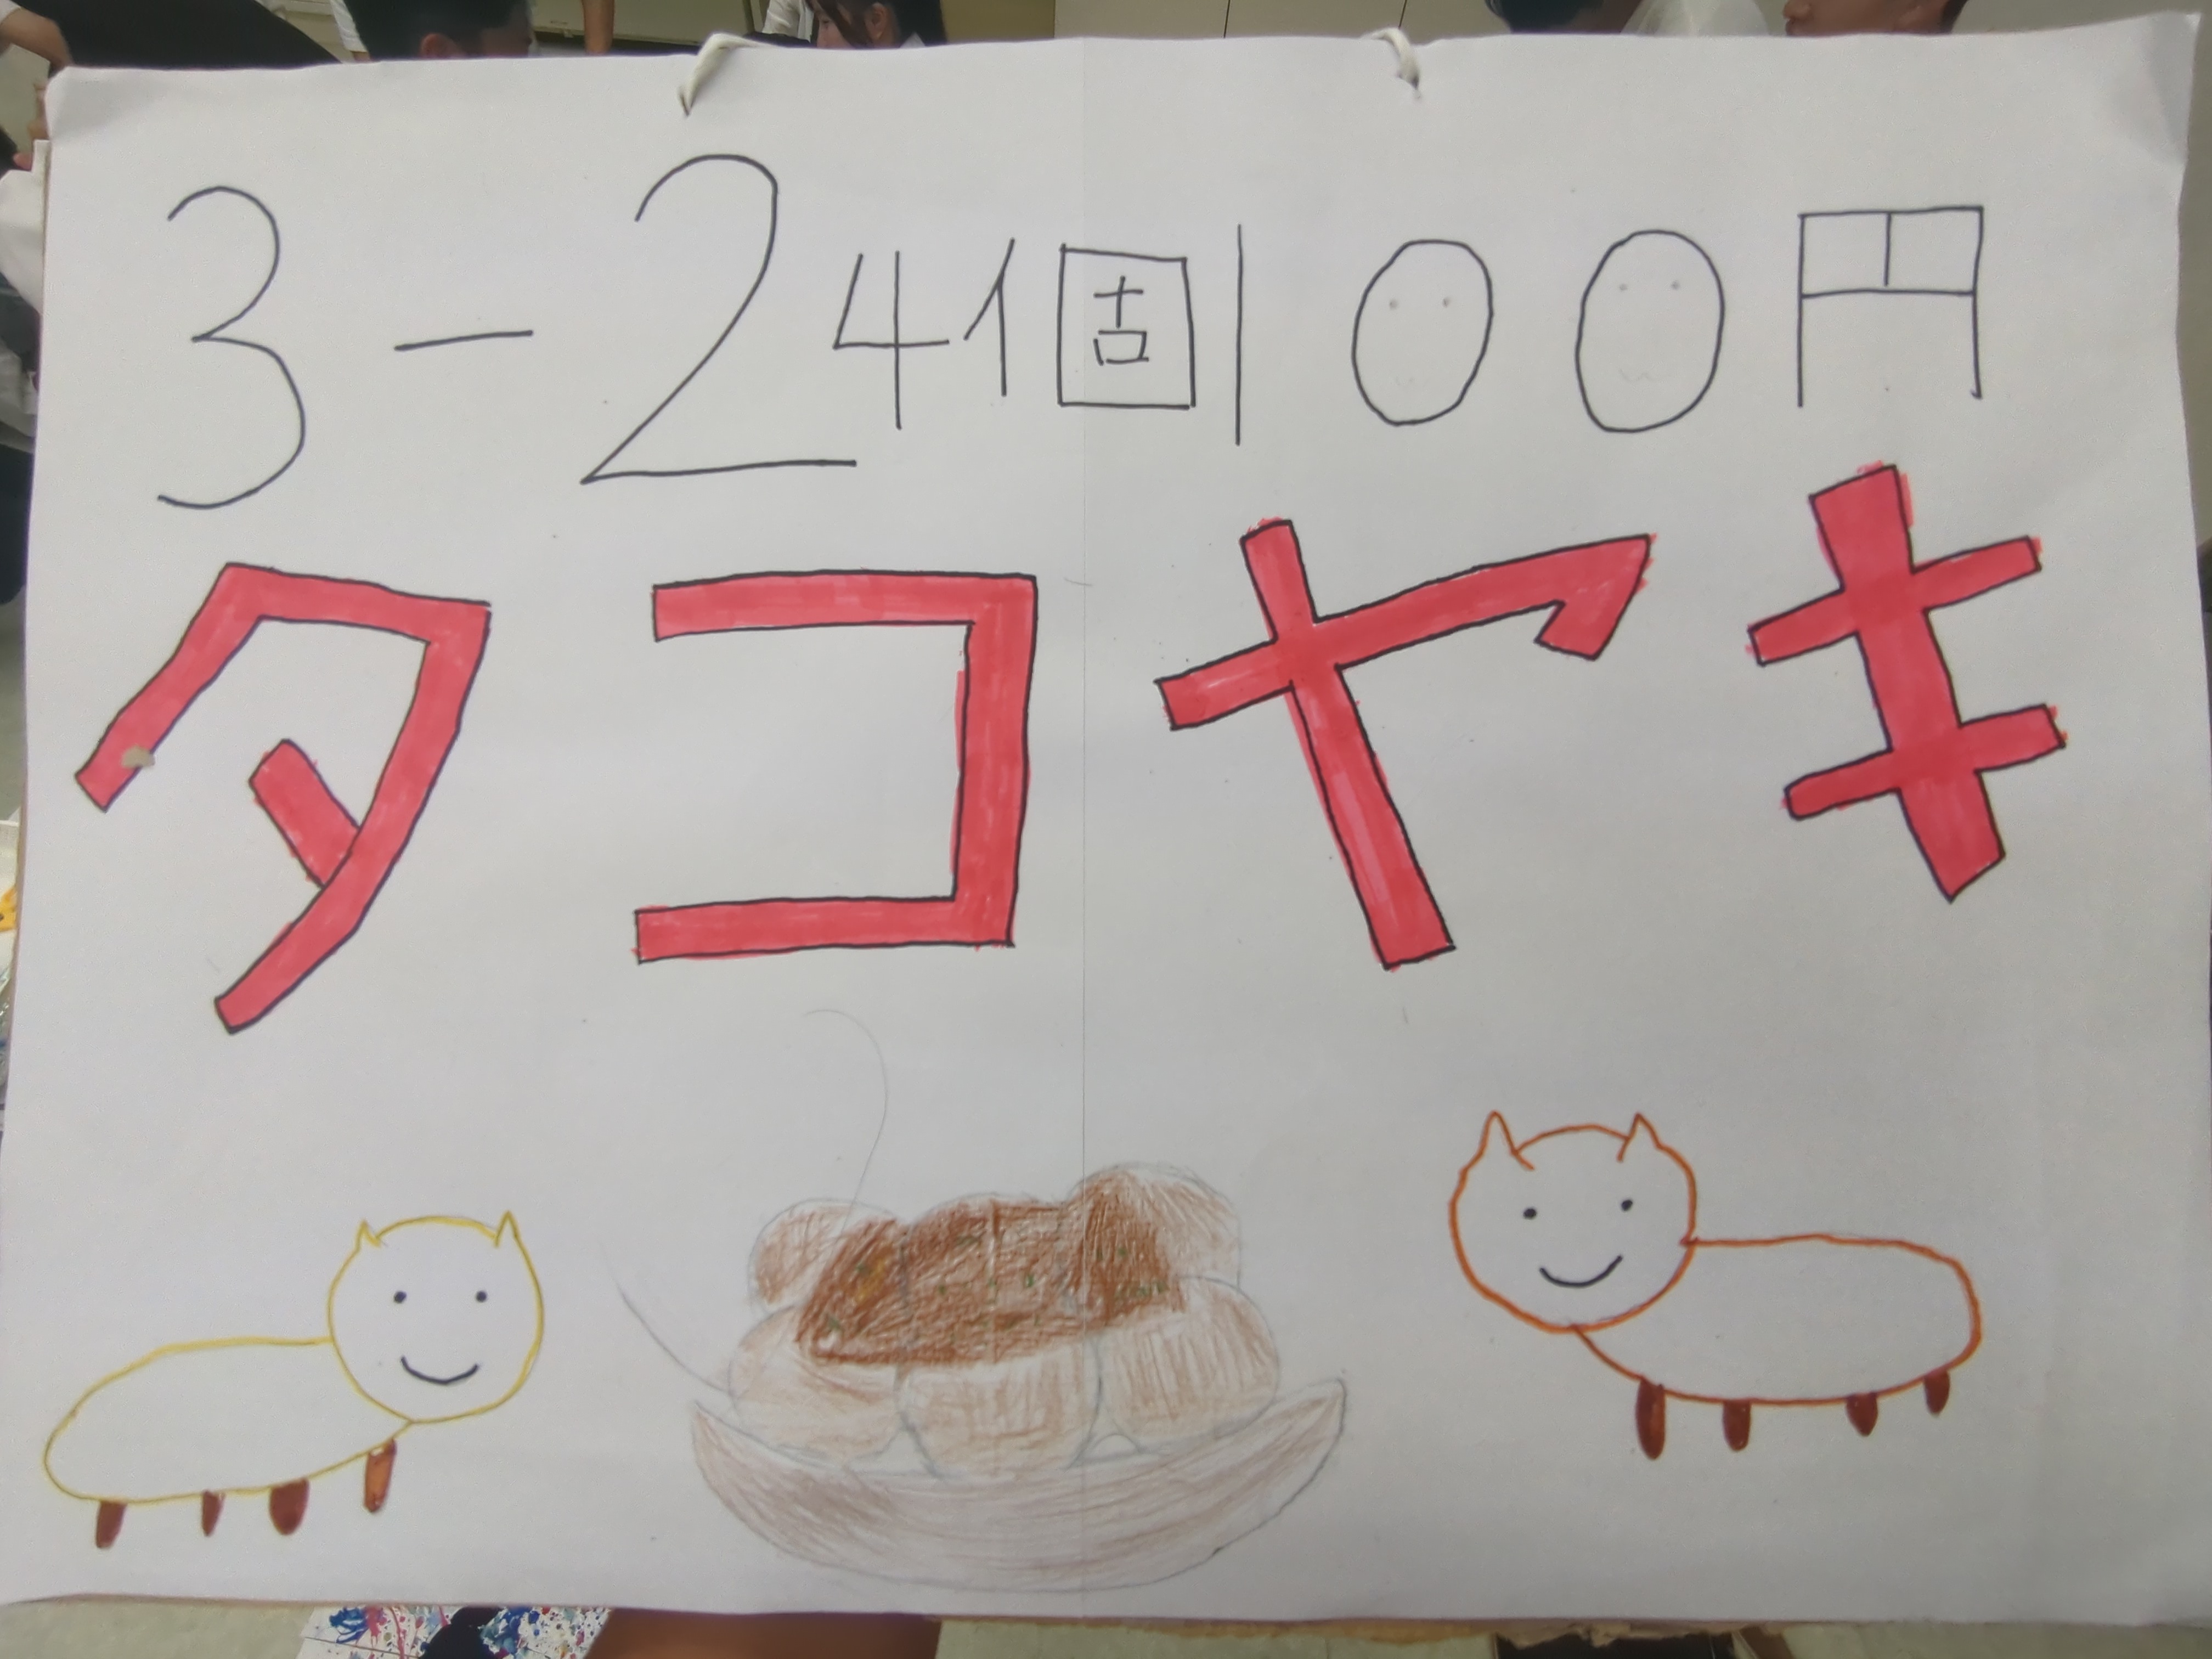 3-2 4個100円
タコヤキ